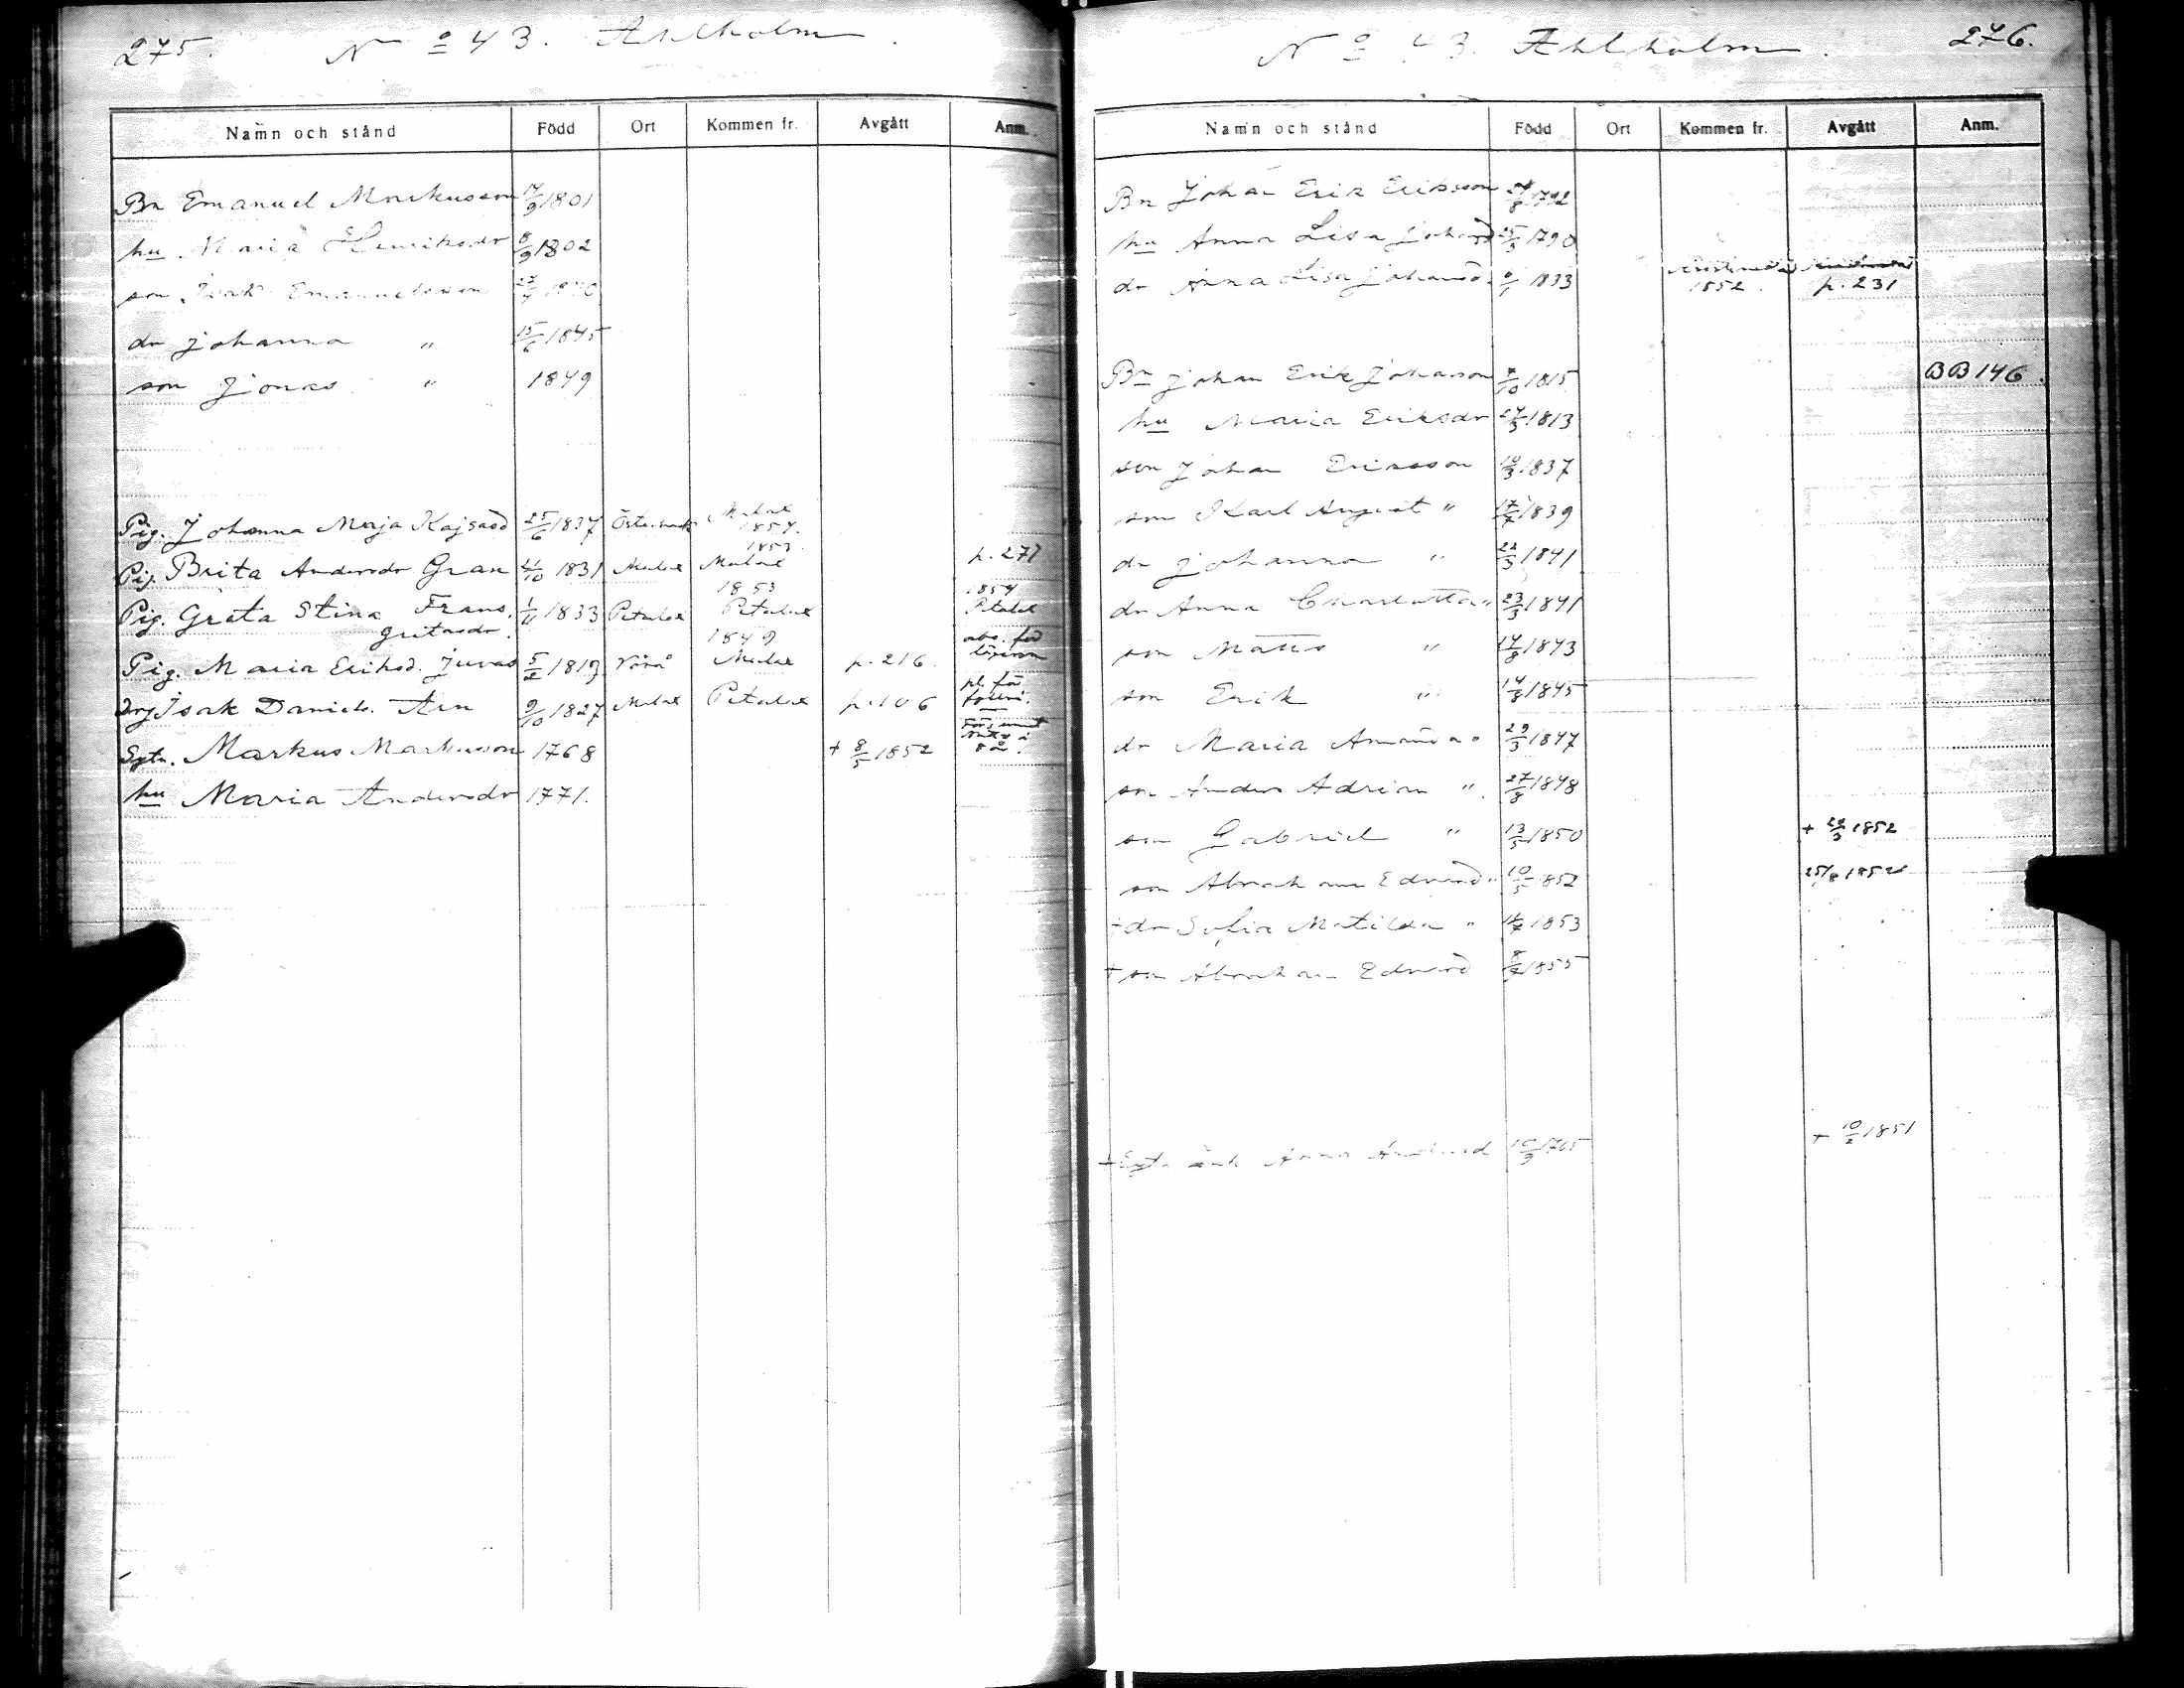 275. No 43. Ahlholm.
Namn och stånd Född Ort Kommen fr. Avgått Anm.
Bn Emanuel Markusson 17/9 1801
hu Maria Henriksdr 8/9 1802
son Isak Emanuelsson 27/7 1840
dr Johanna " 15/6 1845
son Jonas " 1849
Pig. Johanna Maja Kajsasd 25/6 1837 Malax 1854.
Pig. Brita Andersdr Gran 4/10 1831 Malax 1853. Malax p. 277
Pig. Greta Stina Frans. gretasdr. 1/11 1833 Petalax 1853 Petalax 1854 Petalax
Pig. Maria Eriksd. Juvas 5/2 1819 Vörå 1849 Malax p. 216.
Drg Isak Daniels. Arn 9/10 1827 Malax Petalax p. 106
Sytn. Markus Markusson 1768 + 8/5 1852
hu Maria Andersdr 1771.
No 43. Ahlholm. 276.
Namn och stånd Född Ort Kommen fr. Avgått Anm.
Bn Johan Erik Eriksson 1792
hu Anna Lisa Johansd 25/3 1790
dr Anna Lisa Johansd. 1833 1852. p. 231
Bn Johan Erik Johansson 1815 BB 146.
hu Maria Eriksdr 27/3 1813
son Johan Eriksson 10/3 1837
son Karl August " 1839
dr Johanna " 22/3 1841
dr Anna Charlotta " 23/3 1841
son Matts " 14/8 1843
son Erik " 14/8 1845
dr Maria Amanda " 29/3 1847
son Anders Adrian " 27/8 1848
son Gabriel " 13/5 1850 + 22/3 1852
son Abraham Edvard " 10/5 1852 25/8 1852
+ dr Sofia Matilda " 1853
+ son Abraham Edvard 8/7 1855
+ Sytn. änk Anna 1765 + 10/2 1851